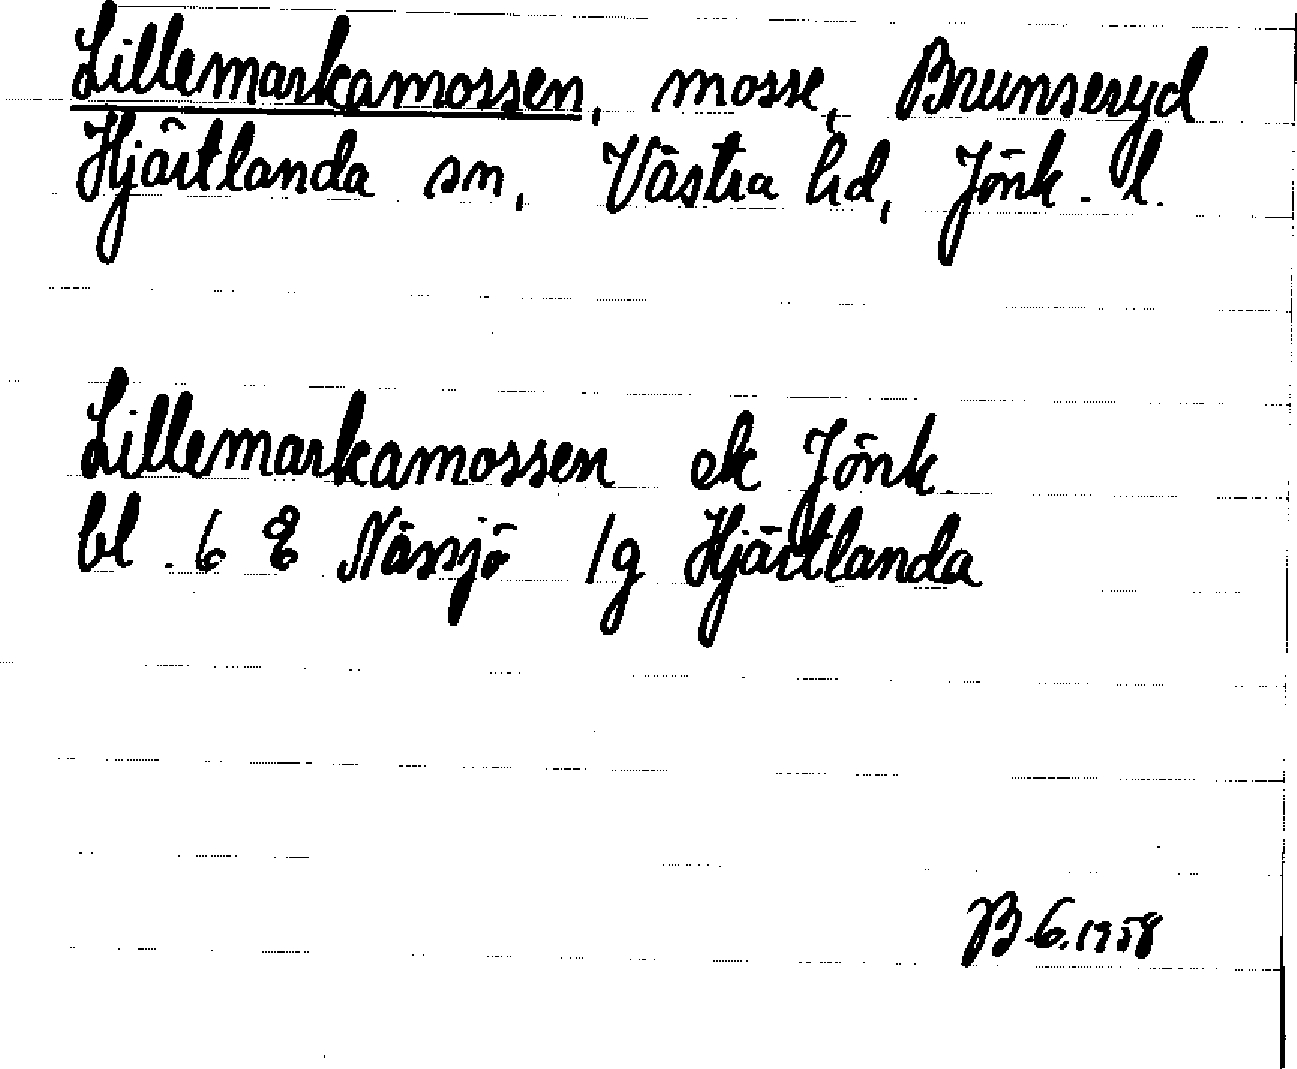 Lillemarkamossen, mosse, Brunseryd
Hjärtlanda sn, Västra hd, Jönk. l.
Lillemarkamossen ek Jönk.
bl. 6 E Nässjö 1g Hjärtlanda
B.G. 1958